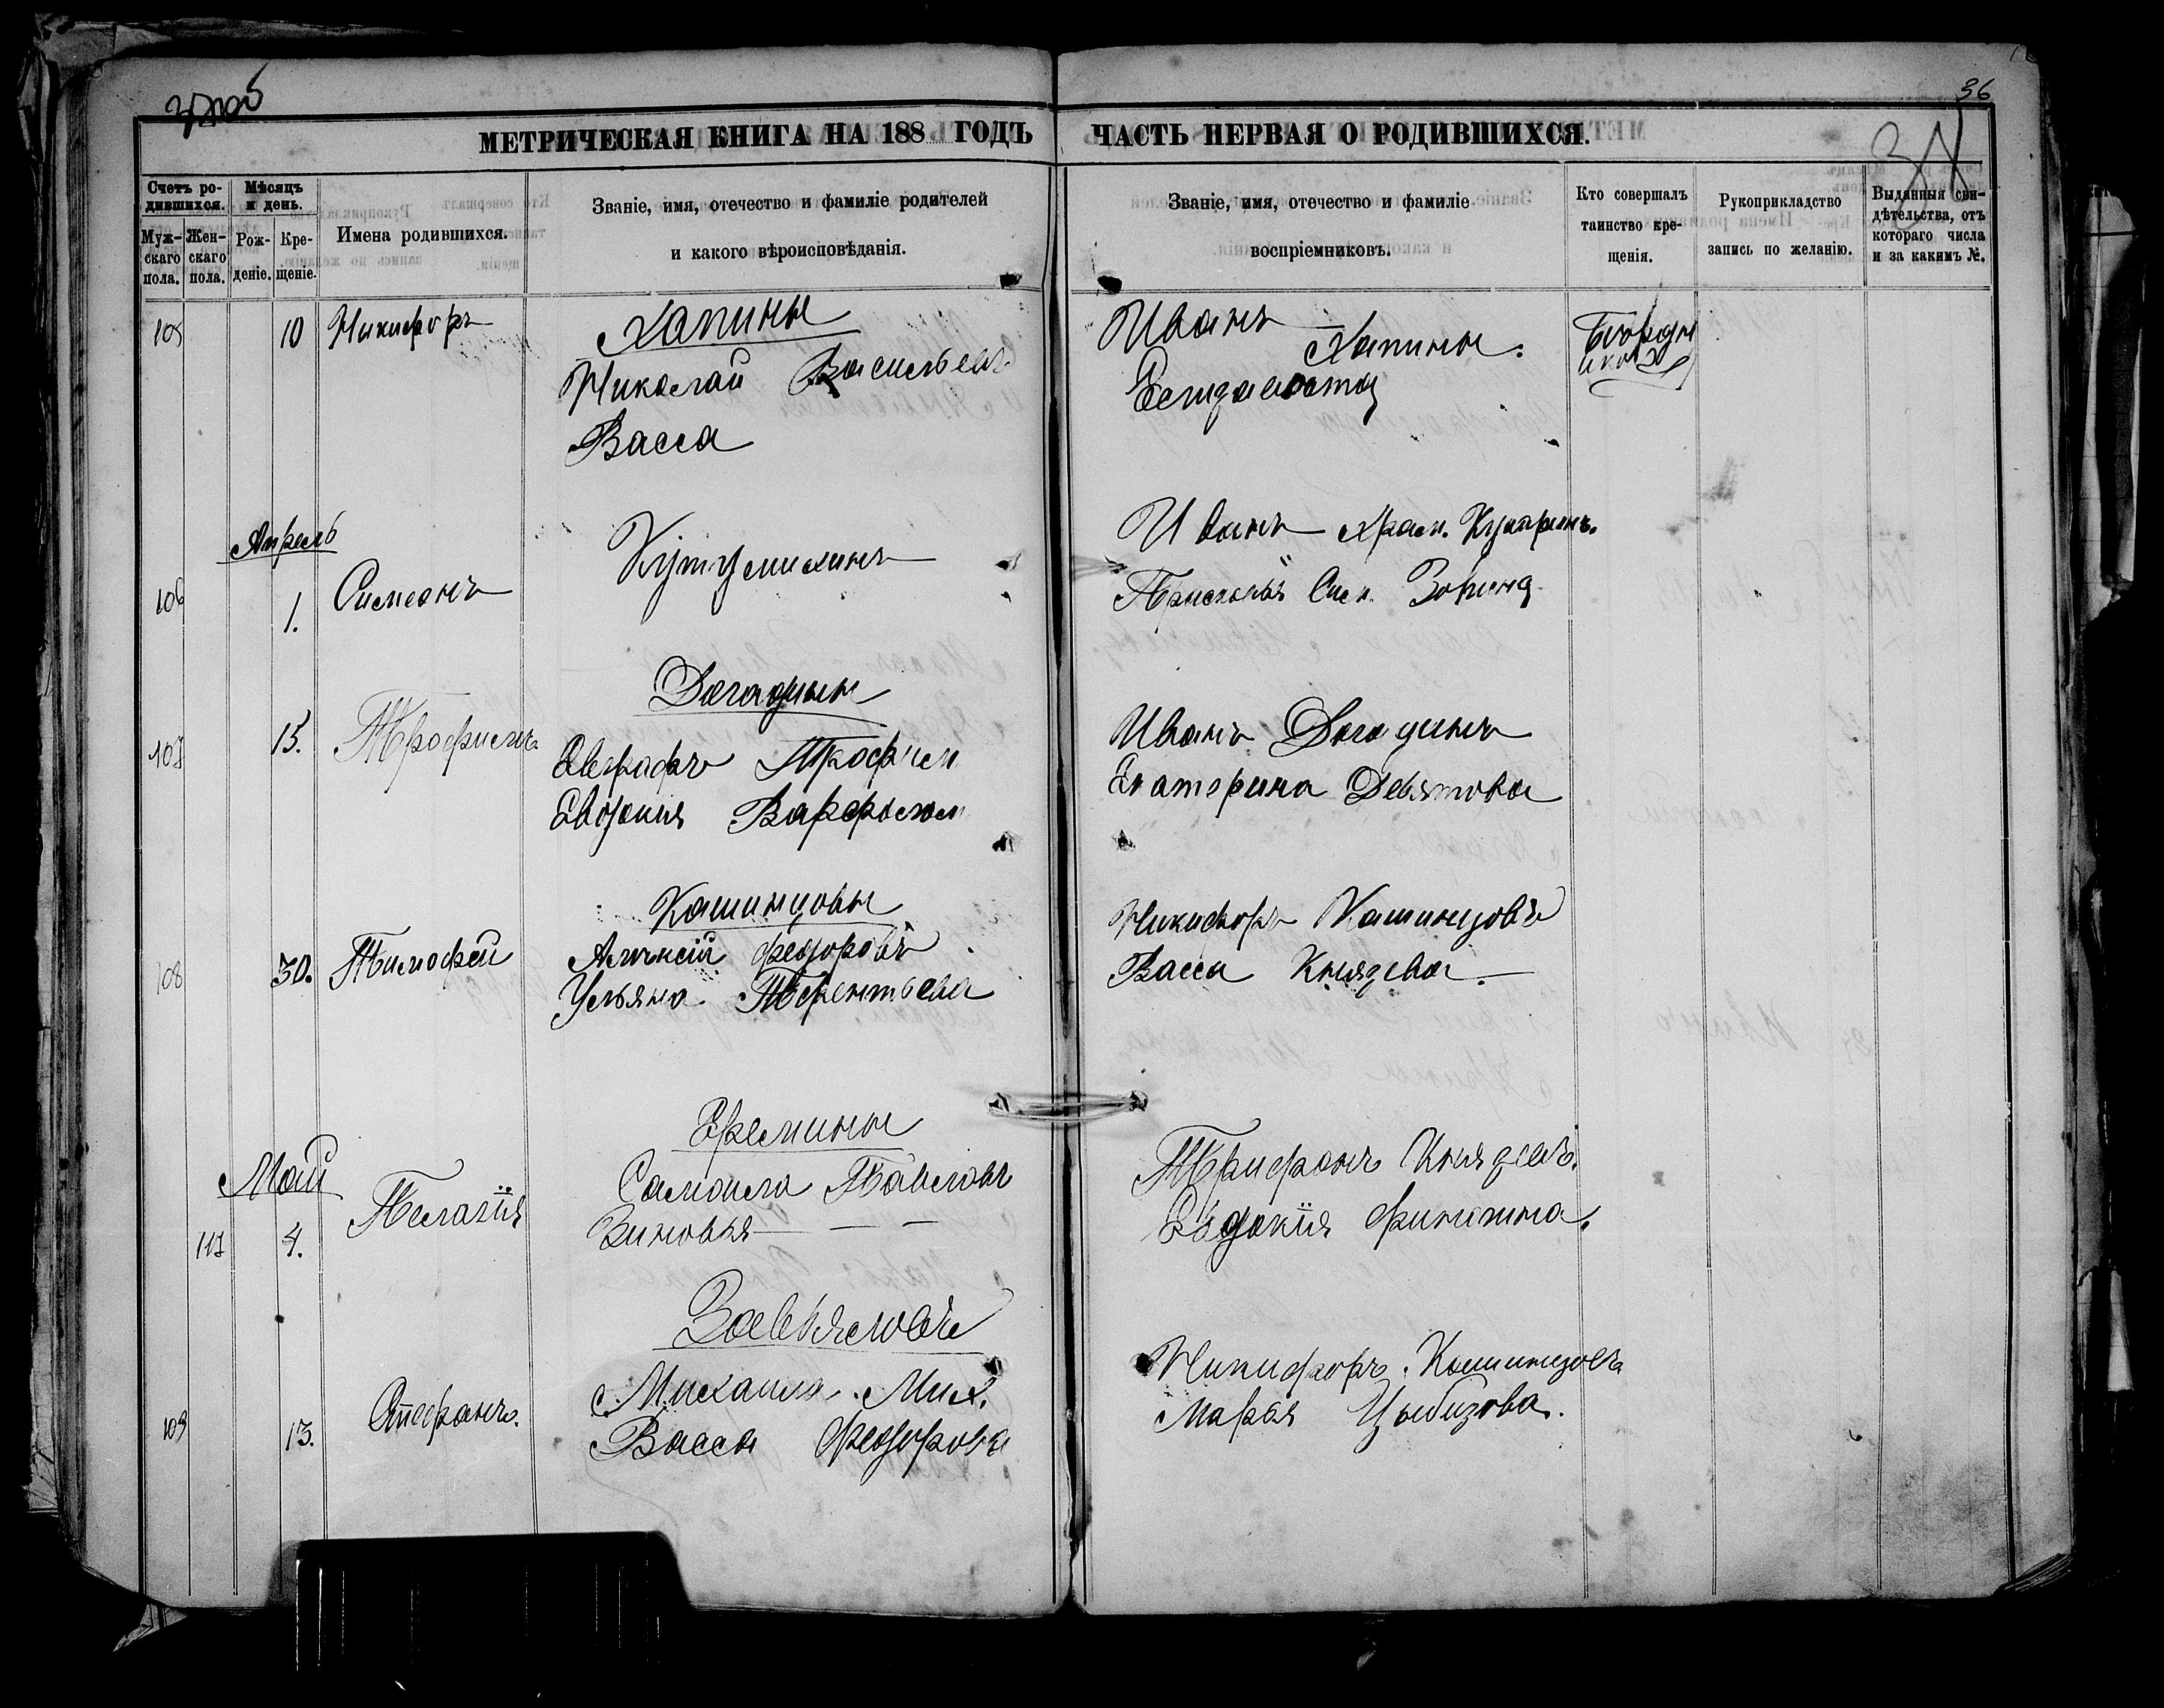 36
МЕТРИЧЕСКАЯ КНИГА НА 188 ГОДЪ
ЧАСТЬ ПЕРВАЯ О РОДИВШИХСЯ.
Счетъ ро-
дившихся.
Мѣсяцъ
и день.
Муж-
скаго
пола.
Жен-
скаго
пола.
Рож-
деніе.
Кре-
щеніе.
Имена родившихся.
Званіе, имя, отечество и фамиліе родителей
и какого вѣроисповѣданія.
Званіе, имя, отечество и фамиліе
воспріемниковъ.
Кто совершалъ
таинство кре-
щенія.
Рукоприкладство
запись по желанію.
Выданныя сви-
дѣтельства, отъ
котораго числа
и за какимъ №.
105 10 Никифоръ
Хапины
Николай Васильевъ
Васса
Иванъ
Хапины.
Елизавета
Апрель
106 1. Симеонъ
Иванъ
Зорина
107 15. Трофимъ
Догадины
Евграфъ Трофим
Евдокия Варфолом
Иванъ Догадинъ
Екатерина Девятова
108 30. Тимофей
Кашинцовы
Алексій Федоровъ
Ульяна Терентьева
Никифоръ Кашинцовъ
Васса Князева.
Май
111 4. Пелагія
Еремины
Самоила Павловъ
Зиновья
Трифонъ Князевъ.
Евдокія
109 13. Стефанъ.
Завьяловъ
Михаила. Мих.
Васса Федорова
Никифоръ. Кашинцовъ
Марья Цыбизова.